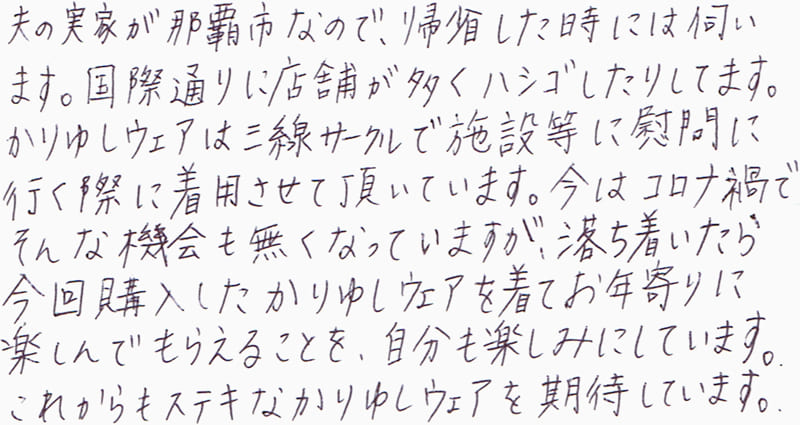 夫の実家が那覇市なので、帰省した時には伺い
ます。国際通りに店舗が多くハシゴしたりしてます。
かりゆしウェアは三線サークルで施設等に慰問に
行く際に着用させて頂いています。今はコロナ禍で
そんな機会も無くなっていますが、落ち着いたら
今回購入したかりゆしウェアを着てお年寄りに
楽しんでもらえることを、自分も楽しみにしています。
これからもステキなかりゆしウェアを期待しています。